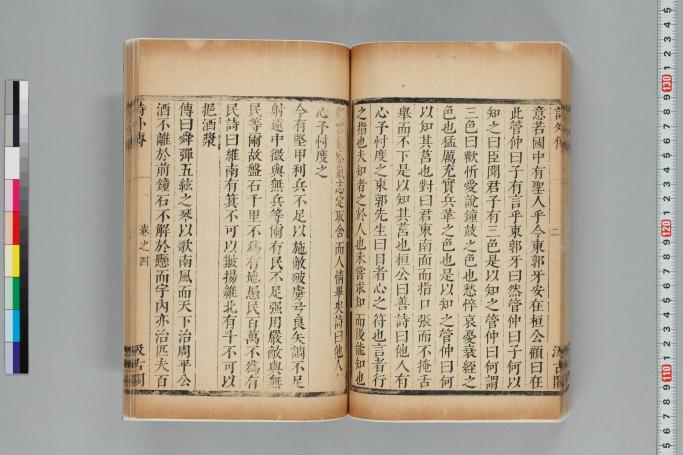 意若國中有聖人乎今東郭牙安在桓公顧曰在
此管仲曰子有言乎東郭牙曰然管仲曰子何以
知之曰臣聞君子有三色是以知之管仲曰何謂
三色曰歡忻愛說鐘鼓之色也愁悴哀憂衰絰之
色也猛厲充實兵革之色也是以知之管仲曰何
以知其莒也對曰君東南面而指口張而不掩舌
舉而不下是以知其莒也桓公曰善詩曰他人有
心予忖度之東郭先生曰目者心之符也言者行
之指也夫知者之於人也未嘗求知而後能知也
志定取舍而人情畢矣詩曰他人
心予忖度之
今有堅甲利兵不足以施敵破虜弓良矢調不足
射遠中微與無兵等爾有民不足強用嚴敵與無
民等爾故盤石千里不為有地愚民百萬不為有
民詩曰維南有箕不可以簸揚維北有斗不可以
挹酒漿
傳曰舜彈五絃之琴以歌南風而天下治周平公
酒不離於前鐘石不解於懸而宇內亦治匹夫百
詩外傳
卷之四
汲古閣